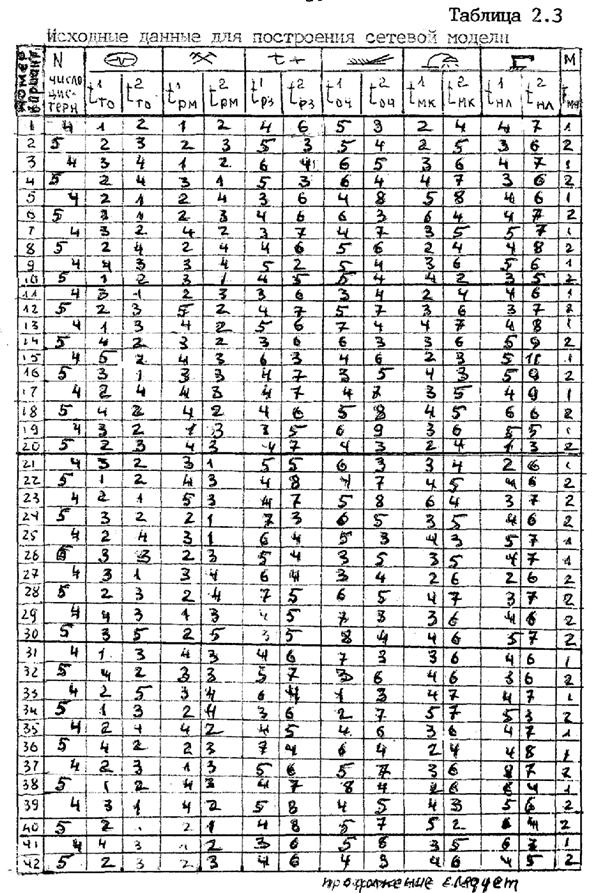 Таблица 2.3
Исходные данные для построения сетевой модели
Номер варианта N число цистерн t¹ТО t²ТО t¹РМ t²РМ t¹РЗ t²РЗ t¹ОЧ t²ОЧ t¹МК t²МК t¹НЛ t²НЛ М
1 4 1 2 1 2 4 6 5 3 2 4 4 7 1
2 5 2 3 2 3 5 3 5 4 2 5 3 6 2
3 4 3 4 1 2 6 4 6 5 3 6 4 7 1
4 5 2 4 3 1 5 3 6 4 4 7 3 6 2
5 4 2 1 2 4 3 6 4 8 5 8 4 6 1
6 5 3 1 2 3 4 6 6 3 6 4 4 7 2
7 4 3 2 4 2 3 7 4 7 3 5 5 7 1
8 5 2 4 2 4 4 6 5 6 2 4 4 8 2
9 4 4 3 3 4 5 2 5 4 3 6 5 6 1
10 5 1 2 3 1 4 5 5 4 4 2 3 5 2
11 4 3 1 2 3 3 6 3 4 2 4 4 6 1
12 5 2 3 5 2 4 7 5 7 3 6 3 7 2
13 4 1 3 4 2 5 6 7 4 4 7 4 8 1
14 5 4 2 3 2 3 6 6 3 3 6 5 9 2
15 4 5 2 4 3 6 3 4 6 2 3 5 11 1
16 5 3 1 3 3 4 7 3 5 4 3 5 9 2
17 4 2 4 4 3 4 7 4 7 3 5 4 9 1
18 5 4 2 4 2 4 6 5 8 4 5 6 6 2
19 4 3 2 1 3 3 5 6 9 3 6 5 5 1
20 5 2 3 4 3 4 7 4 3 2 4 1 3 2
21 4 3 2 3 1 5 5 6 3 3 4 2 6 1
22 5 1 2 4 3 4 8 4 7 4 5 4 6 2
23 4 2 1 5 3 4 7 5 8 6 4 3 7 2
24 5 3 2 2 1 7 3 6 5 3 5 4 6 2
25 4 2 4 3 1 6 4 5 3 4 3 5 7 1
26 3 3 2 3 5 4 3 5 3 5 4 7 1
27 4 3 1 3 4 6 4 3 4 2 6 2 6 2
28 5 2 3 2 4 7 5 6 5 4 7 3 7 2
29 4 4 3 1 3 4 5 7 3 3 6 4 6 2
30 5 3 5 2 5 3 5 8 4 4 6 5 7 2
31 4 1 3 4 3 4 6 7 3 3 6 4 6 1
32 5 4 2 3 3 5 7 3 6 4 6 3 6 2
33 4 2 5 3 4 6 4 1 3 4 7 4 7 1
34 5 1 3 2 4 3 6 2 7 5 7 5 3 2
35 4 2 4 4 2 4 5 4 6 3 6 4 7 1
36 5 4 2 2 3 7 4 6 4 2 4 4 8 1
37 4 2 3 1 3 5 6 5 7 3 6 8 7 2
38 5 1 2 4 3 4 7 8 4 2 6 6 4 1
39 4 3 1 4 2 5 8 4 5 4 3 5 6 2
40 5 2 2 1 4 8 5 7 5 2 6 4 2
41 4 4 3 2 3 6 5 8 3 5 6 7 1
42 5 2 3 2 3 4 6 4 9 4 6 4 5 2
продолжение следует